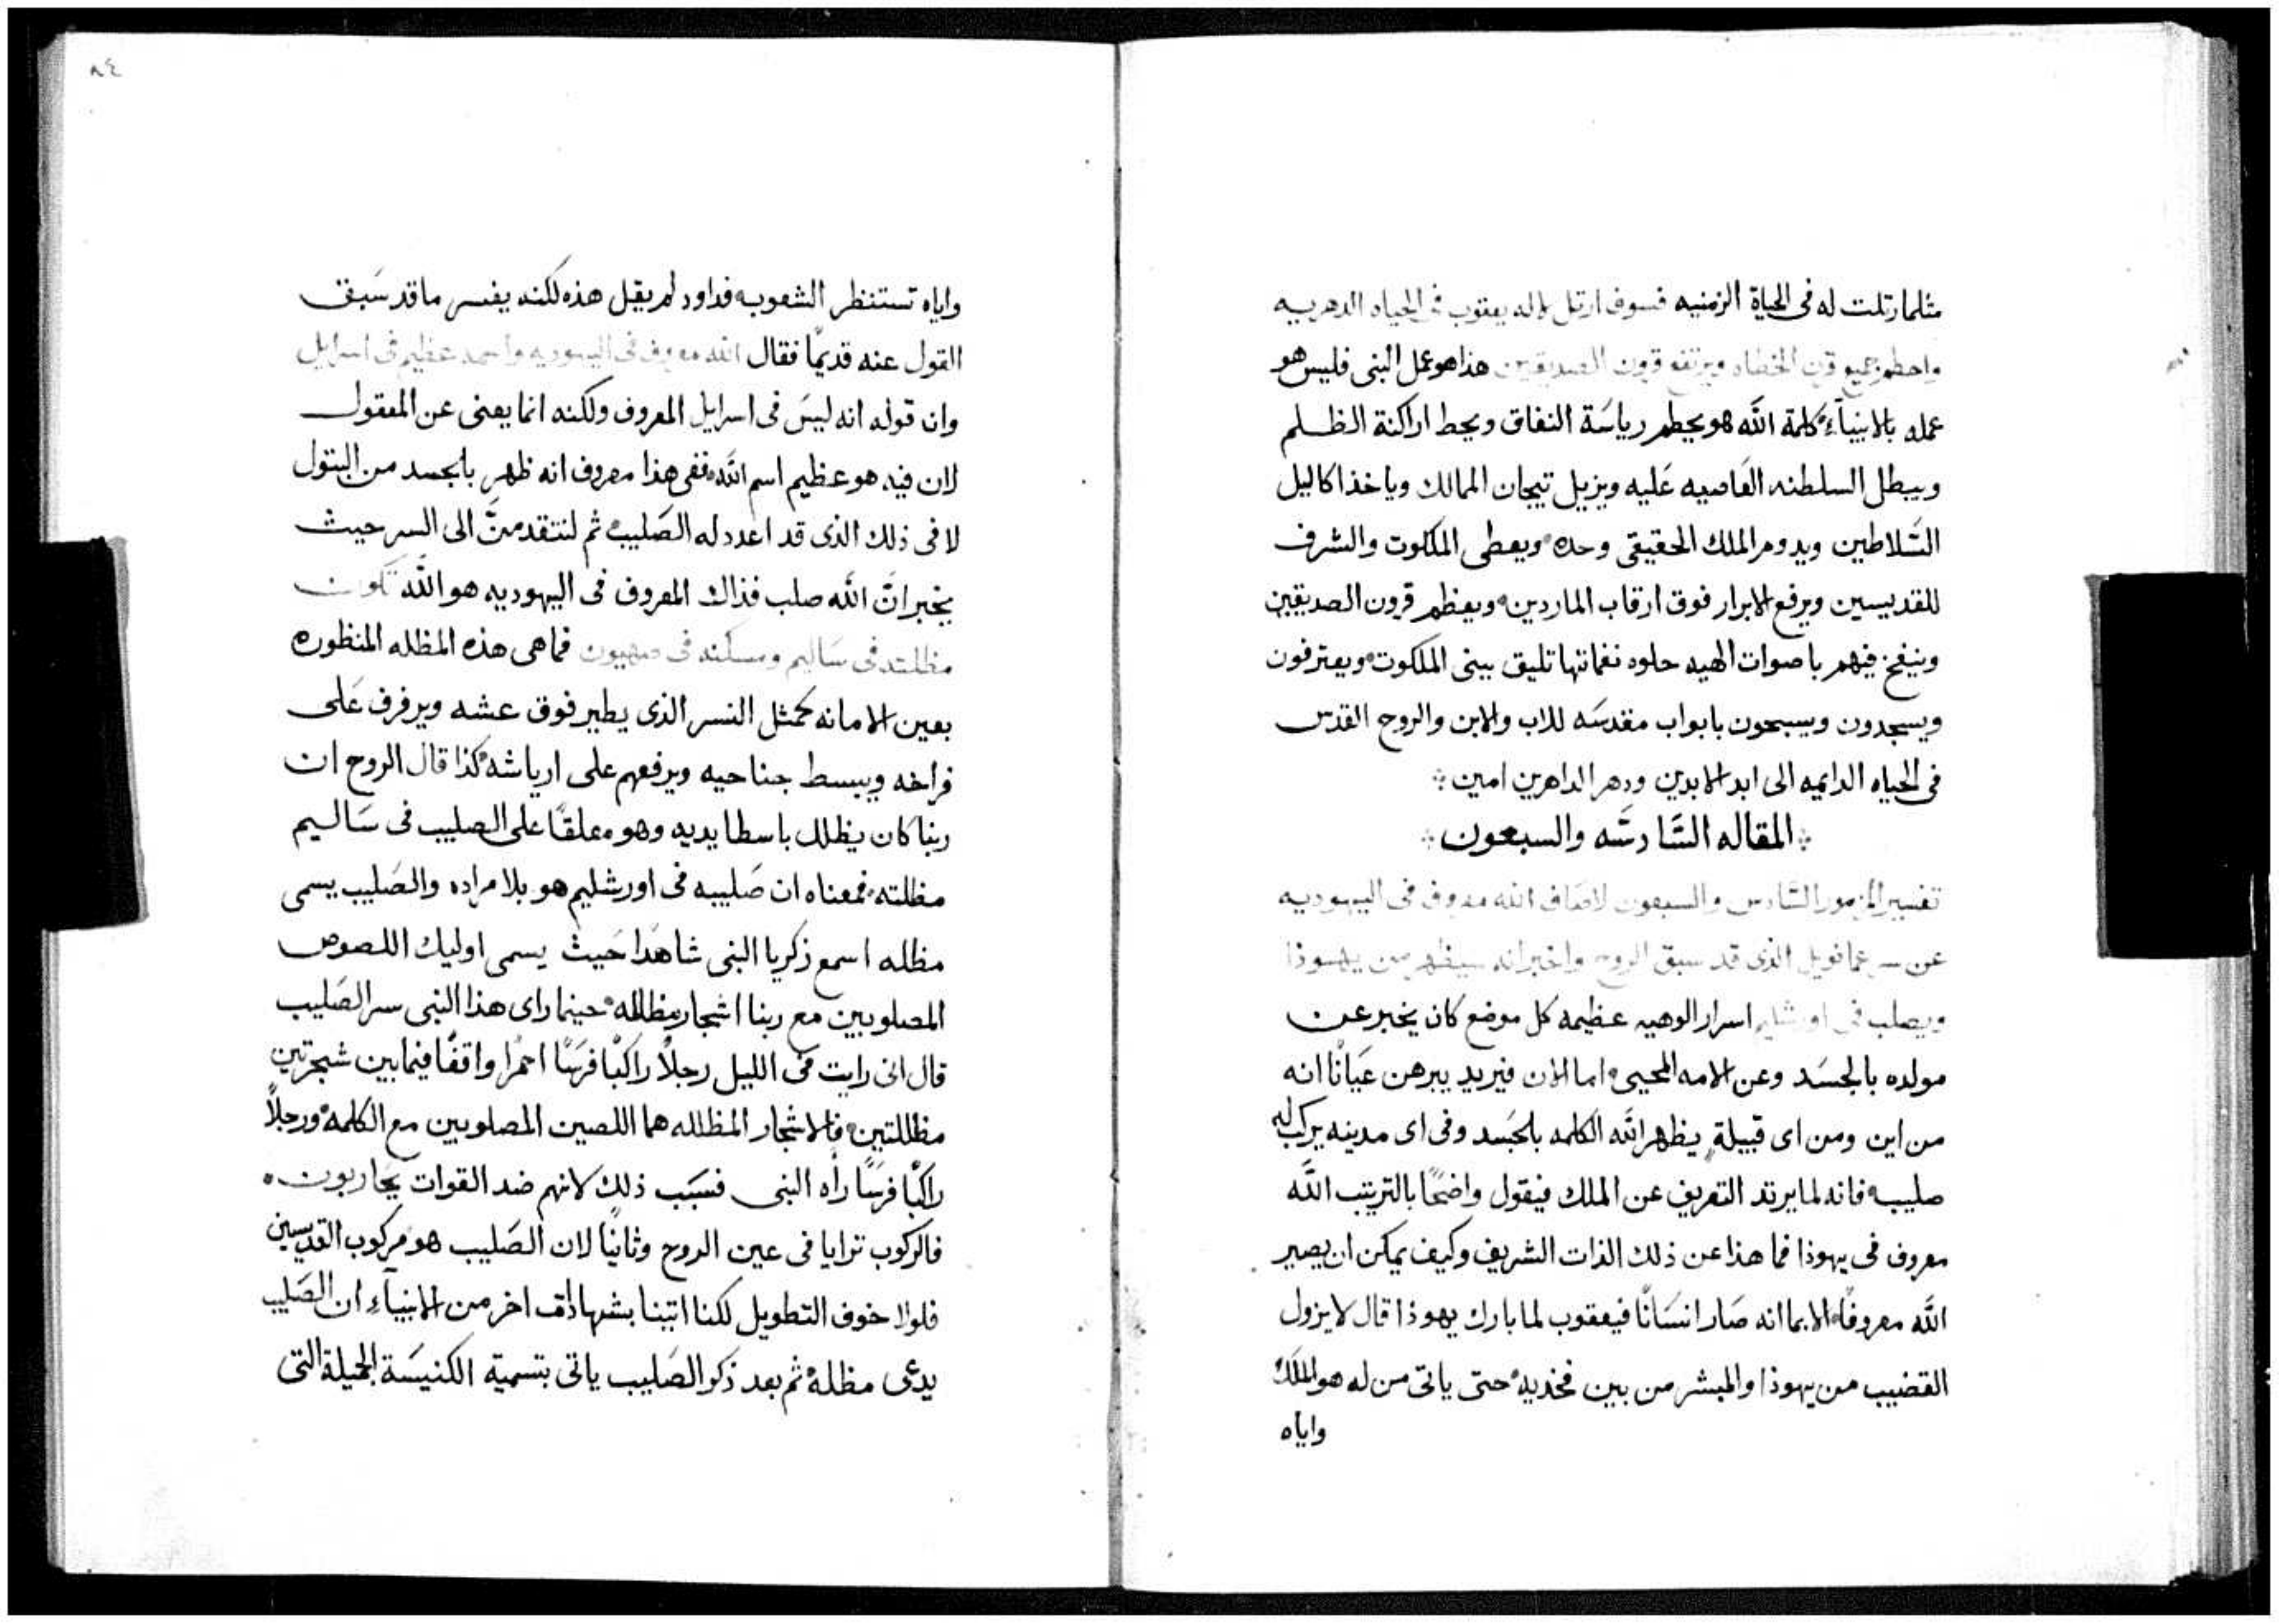 مثلما رتلت له فى الحياة الزمنيه فسوف ارتل لاله يعقوب فى الحياه الدهريه
واحطم جميع قرون الخطاه ويرتفع قرون الصديقين هذا هو عمل النبى فليس هو
عمله بالانبيآء كلمة الله هو يحطم رياسَة النفاق ويحط اراكنة الظلم
ويبطل السلطنه العَاصيه عَليه ويزيل تيجان الممالك وياخذ اكاليل
السَّلاطين ويدوم الملك الحقيقى وحده ويعطى الملكوت والشرف
للقديسين ويرفع الابرار فوق ارقاب الماردين ويعظم قرون الصديقين
وينفخ فيهم باصوات الهيه حلوه نغماتها تليق ببنى الملكوت ويعترفون
ويسجدون ويسبحون بابواب مقدسَه للاب والابن والروح القدس
فى الحياه الدايميه الى ابد الابدين ودهر الداهرين امين
المقاله السَّادسَه والسبعون
تفسير المزمور السَّادس والسبعون لاصاف الله معروف فى اليهوديه
عن سر عمانويل الذى قد سبق الروح واخبر انه سيظهر من يهوذا
ويصلب فى اورشليم اسرار الوهيه عظيمه كل موضع كان يخبر عن
مولده بالجسَد وعن الامه المحيى اما الان فيريد يبرهن عيَانًا انه
من اين ومن اى قبيلة يظهر الله الكلمه بالجسَد وفى اى مدينه يركب له
صليب فانه لما يرتد التعريف عن الملك فيقول واضحًا بالترتيب الله
معروف فى يهوذا فما هذا عن ذلك الذات الشريف وكيف يمكن ان يصير
الله معروفًا الا بما انه صَار انسَانًا فيعقوب لما بارك يهوذا قال لا يزول
القضيب من يهوذا والمبشر من بين فخذيه حتى ياتى من له هو الملك
واياه
٨٤
واياه تستنظر الشعوب فداود لم يقبل هذه لكنه يفسر ما قد سَبق
القول عنه قديمًا فقال الله معروف فى اليهوديه واسمه عظيم فى اسرايل
وان قوله انه ليسَ فى اسرايل المعروف ولكنه انما يعنى عن المعقول
لان فيه هو عظيم اسم الله ففى هذا معروف انه ظهر بالجسد من البتول
لا فى ذلك الذى قد اعدد له الصَليب ثم لنتقدمنَّ الى السر حيث
يخبر انَّ الله صلب فذاك المعروف فى اليهوديه هو اللَّه تكون
مظلته فى سَاليم ومسكنه فى صهيون فما هى هذه المظله المنظوره
بعين الامانه كمثل النسر الذى يطير فوق عشه ويرفرف عَلى
فراخه ويبسط جناحيه ويرفعهم على ارياشه كذا قال الروح ان
ربنا كان يظلل باسطا يديه وهو معلقًا على الصليب فى سَاليم
مظلته فمعناه ان صَليبه فى اورشليم هو بلا مراده والصَليب يسمى
مظله اسمع زكريا النبى شاهدًا حَيث يسمى اوليك اللصوص
المصلوبين مع ربنا اشجار مظلله حينما راى هذا النبى سر الصَليب
قال انى رايت فى الليل رجلاً راكبًا فرسًا احمرًا واقفًا فيما بين شجرتين
مظللتين فالاشجار المظلله هما اللصين المصلوبين مع الكلمه ورجلاً
راكبًا فرسًا رأه النبى فسبَب ذلك لانهم ضد القوات يحَاربون
فالركوب ترايا فى عين الروح وثانيًا لان الصَليب هو مركوب القديسين
فلولا خوف التطويل لكنا اتينا بشهادات اخر من الانبيآءِ ان الصَليب
يدعى مظله ثم بعد ذكر الصَليب ياتى بتسمية الكنيسَة الجميلة التى